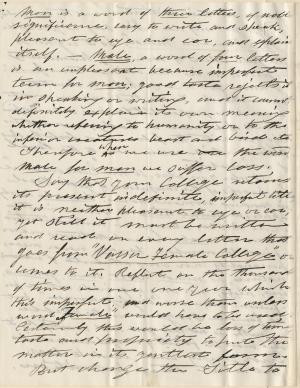 Man is a word of three letters, of noble
significance, easy to write and speak,
pleasant to eye and ear, and explains
itself. — Male, a word of four letters
is an unpleasant because imperfect
term for man; good taste rejects it
in speaking or writing, and it cannot
definitely explain its own meaning
whether referring to humanity or to the
inferior creatures beast and bird etc
Therefore when we use the word
Male for man we suffer loss.
Say that your College retains
its present indefinite, imperfect title
it is neither pleasant to eye or ear,
yet still it must be written
and read on every letter that
goes from "Vassar Female College" or
comes to it. Reflect on the thousand
of times in one year which
this imperfect, and worse than useless
word female would have to be used.
Certainly this would be loss of time
taste and propriety to put the
matter in its gentlest form
But change the Title to